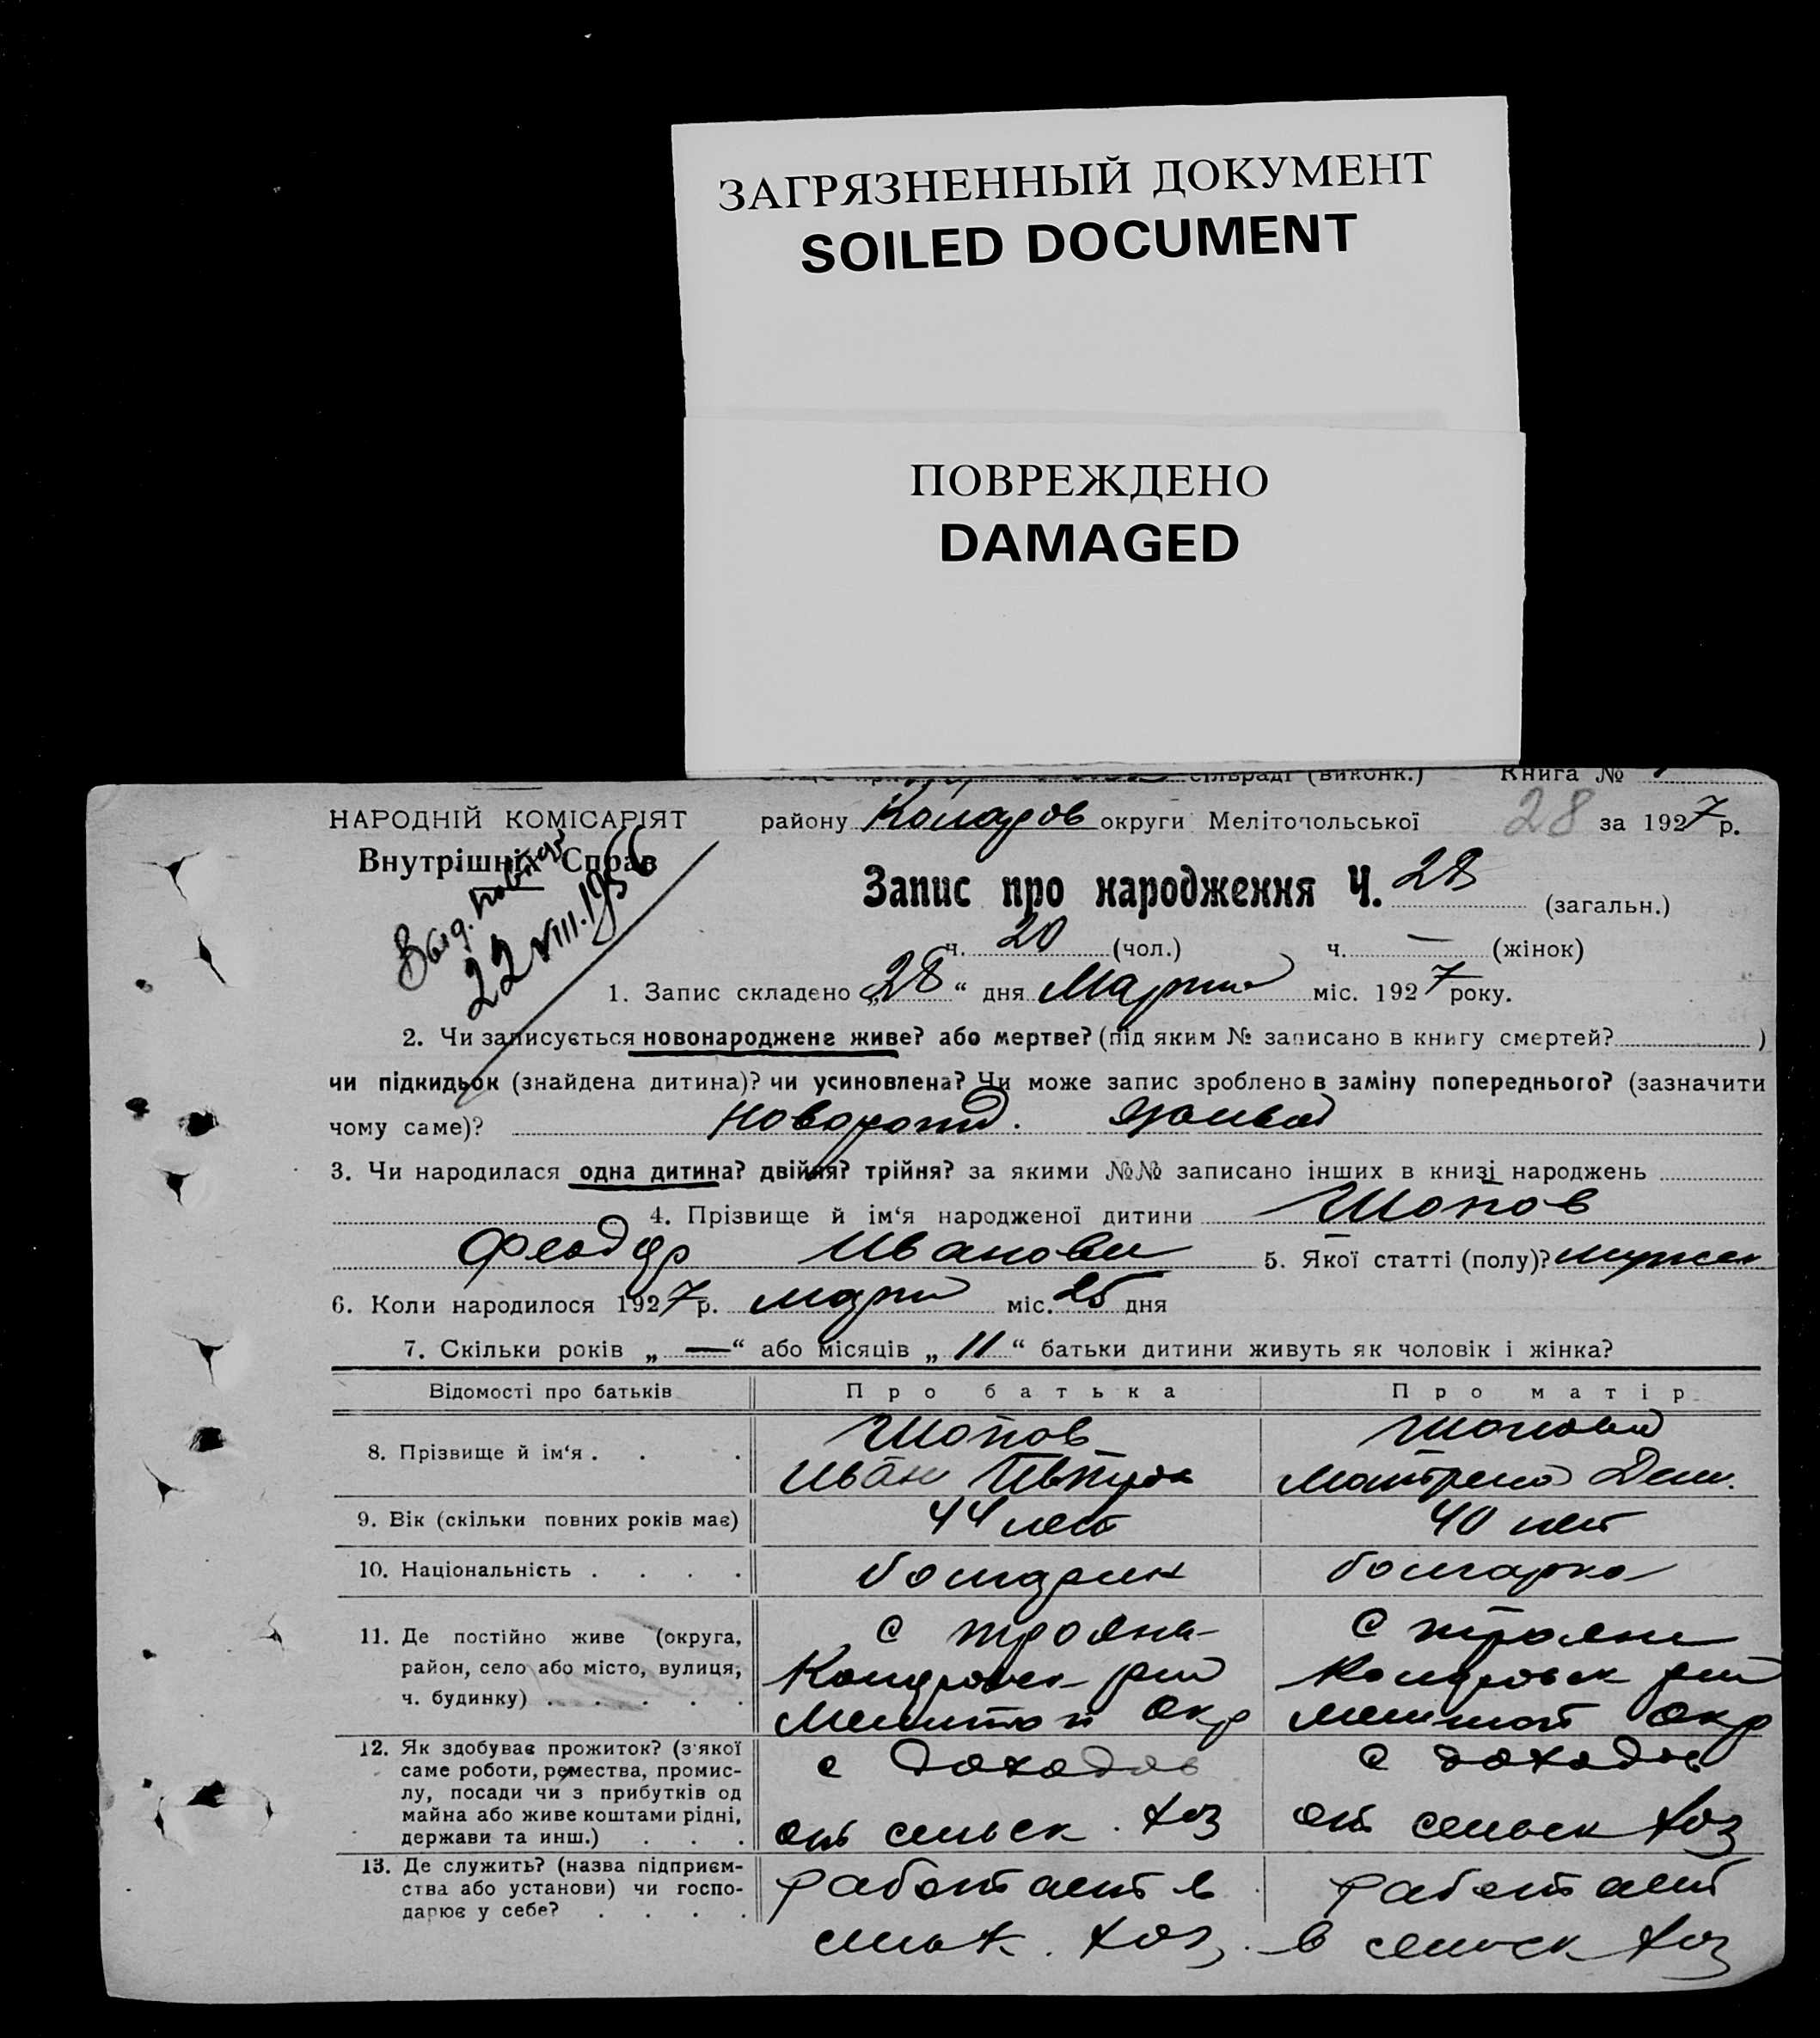 ЗАГРЯЗНЕННЫЙ ДОКУМЕНТ
SOILED DOCUMENT
ПОВРЕЖДЕНО
DAMAGED
сільраді (виконк.) Книга №
НАРОДНІЙ КОМІСАРІЯТ
Внутрішніх Справ
району Коларов округи Мелітопольської 28 за 1927 р.
Запис про народження Ч. 28 (загальн.)
22 VIII.1956
ч. 20 (чол.) ч. — (жінок)
1. Запис складено „28“ дня Марта міс. 1927 року.
2. Чи записується новонароджене живе? або мертве? (під яким № записано в книгу смертей? )
чи підкидьок (знайдена дитина)? чи усиновлена? Чи може запис зроблено в заміну попереднього? (зазначити
чому саме)? Новорожд. живой
3. Чи народилася одна дитина? двійня? трійня? за якими №№ записано інших в книзі народжень
4. Прізвище й ім‘я народженої дитини Шопов
Феодор Иванови 5. Якої статті (полу)? мужск
6. Коли народилося 1927 р. март міс. 25 дня
7. Скільки років „—“ або місяців „11“ батьки дитини живуть як чоловік і жінка?
Відомості про батьків Про батька Про матір
8. Прізвище й ім‘я . . . Шопов Шопова
Иван Матрена Дем.
9. Вік (скільки повних років має) 44 лет 40 лет
10. Національність . . . . болгарин болгарка
11. Де постійно живе (округа, район, село або місто, вулиця, ч. будинку) . . . . .
с Трояна Коларовск р-на Мелитоп Окр
с Трояни Коларовск р-на Мелитоп Окр
12. Як здобуває прожиток? (з‘якої саме роботи, ремества, промислу, посади чи з прибутків од майна або живе коштами рідні, держави та инш.) . . .
с доходов от сельск. хоз
с доходов от сельск хоз
13. Де служить? (назва підприємства або установи) чи господарює у себе? . . . .
работает в сельск. хоз.
работает в сельск хоз